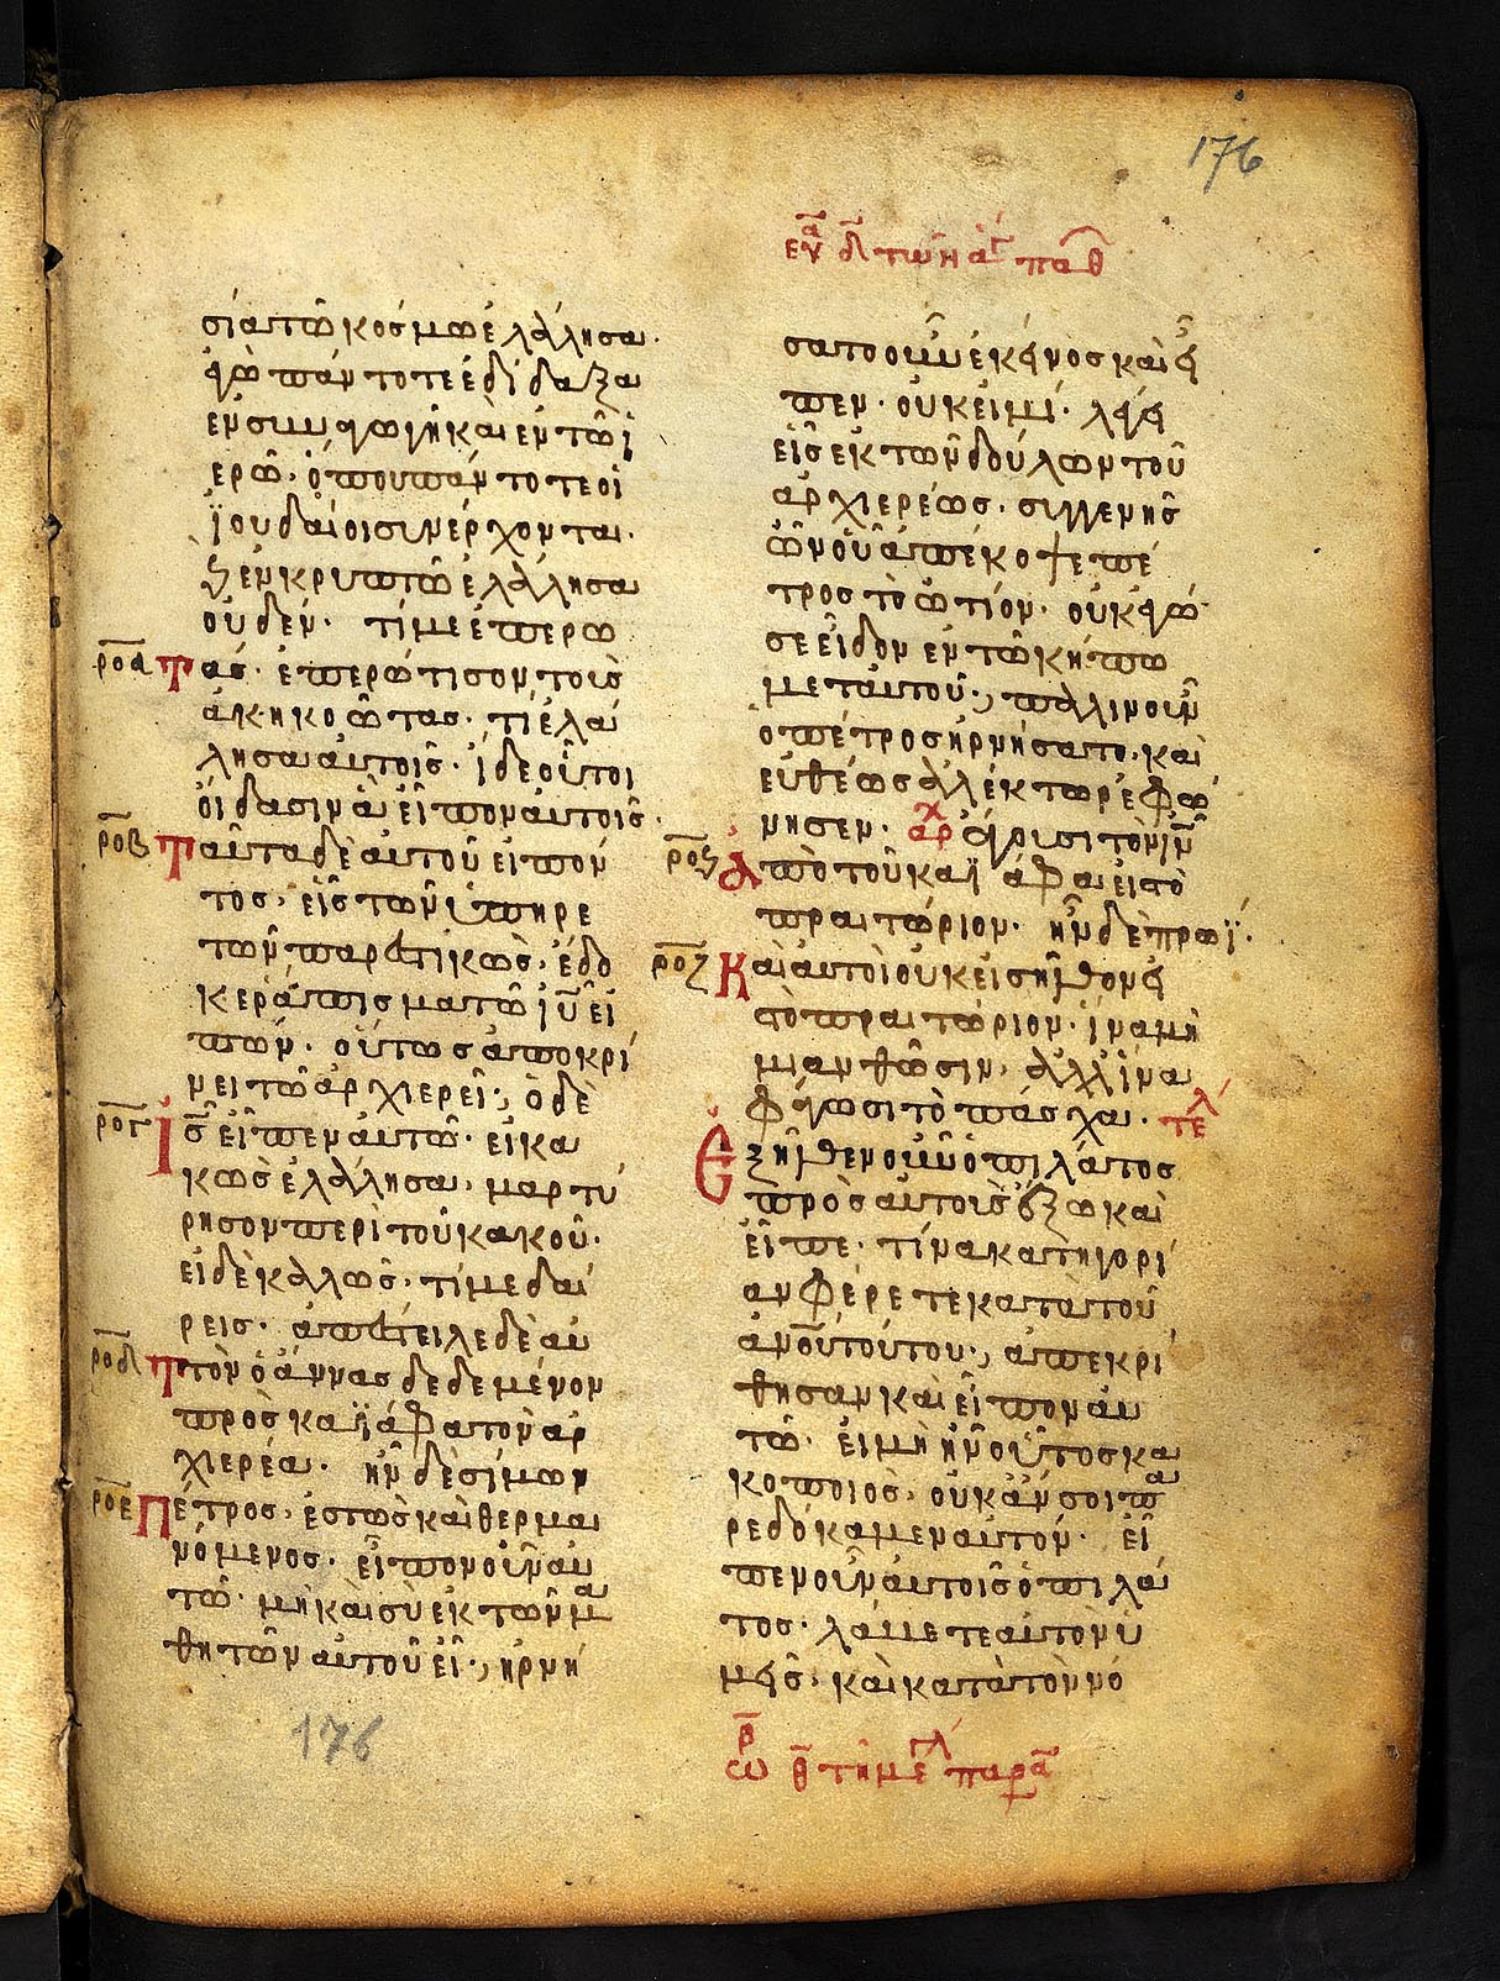 176
ευα δ τῶν ἁγ παθ
σία τῶ κόσμω ἐλάλησα·
ἐγὼ πάντοτε ἐδίδαξα
ἐν συναγωγῆ καὶ ἐν τῶ ἱ
ερῶ· ὅπου πάντοτε οἱ
ϊουδαίοι συνέρχονται·
ϗ ἐν κρυπτῶ ἐλάλησα
οὐδέν· τί με ἐπερω
ροα Τας· ἐπερώτισον τοὺς
ἀκηκοῶτας· τί ἐλά
λησα αὐτοῖς· ἰδε οὗτοι
οἴδασιν ἃ εἶπον αὐτοῖς·
ροβ Ταῦτα δὲ αὐτοῦ εἰπόν
τος· εἷς τῶν ὑπηρε
τῶν παρεστικὼς· ἔδω
κε ράπισμα τῶ ιυ εἰ
πών· οὕτως ἀποκρί
νει τῶ ἀρχιερεῖ·, ὁ δὲ
ρογ Ις εἶπεν αὐτῶ· εἰ κα
κῶς ἐλάλησα· μαρτύ
ρησον περὶ τοῦ κακοῦ·
εἰ δὲ καλῶς· τί με δαί
ρεις· ἀπέστειλε δὲ αὐ
ροδ Τὸν ὁ ἄννας δεδεμένον
πρὸς καϊάφα τὸν ἀρ
χιερέα· ἦν δὲ σίμων
ροε Πέτρος· ἑστὼς καὶ θερμαι
νόμενος· εἶπον οὖν αὐ
τῶ· μὴ καὶ σὺ ἐκ τῶν μα
θητῶν αὐτοῦ εἶ·, ἠρνή
176
σατο οὖν ἐκεῖνος καὶ εἶ
πεν· οὐκ εἰμί· λέγει
εἷς ἐκ τῶν δούλων τοῦ
ἀρχιερέως· συγγενὴς
ὢν οὗ ἀπέκοψε πέ
τρος τὸ ὠτίον· οὐκ ἐγώ
σε εἶδον ἐν τῶ κήπω
μετ αὐτοῦ·, πάλιν οὖν
ὁ πέτρος ἠρνήσατο· καὶ
εὐθέως ἀλέκτωρ ἐφώ
νησεν· αρχ ἄγουσι τὸν ιν
ροϛ Ἀπὸ τοῦ καϊάφα εἰς τὸ
πραιτώριον· ἦν δὲ πρωΐ·
ροζ Καὶ αὐτοὶ οὐκ εἰσῆλθον εἰς
τὸ πραιτώριον· ἵνα μὴ
μιανθῶσιν· ἀλλ ἵνα
φάγωσι τὸ πάσχα· τελ
Ἐξῆλθεν οὖν ὁ πιλάτος
πρὸς αὐτοὺς ἔξω καὶ
εἶπε· τίνα κατηγορί
αν φέρετε κατὰ τοῦ
ἀνου τούτου·, ἀπεκρί
θησαν καὶ εἶπον αὐ
τῶ· εἰ μὴ ἦν οὗτος κα
κοποιὸς· οὐκ ἄν σοι πα
ρεδόκαμεν αὐτόν· εἶ
πεν οὖν αὐτοῖς ὁ πιλά
τος· λάβετε αὐτὸν ὑ
μεῖς· καὶ κατὰ τὸν νό
ωρ θ τῆ μεγλ παρα